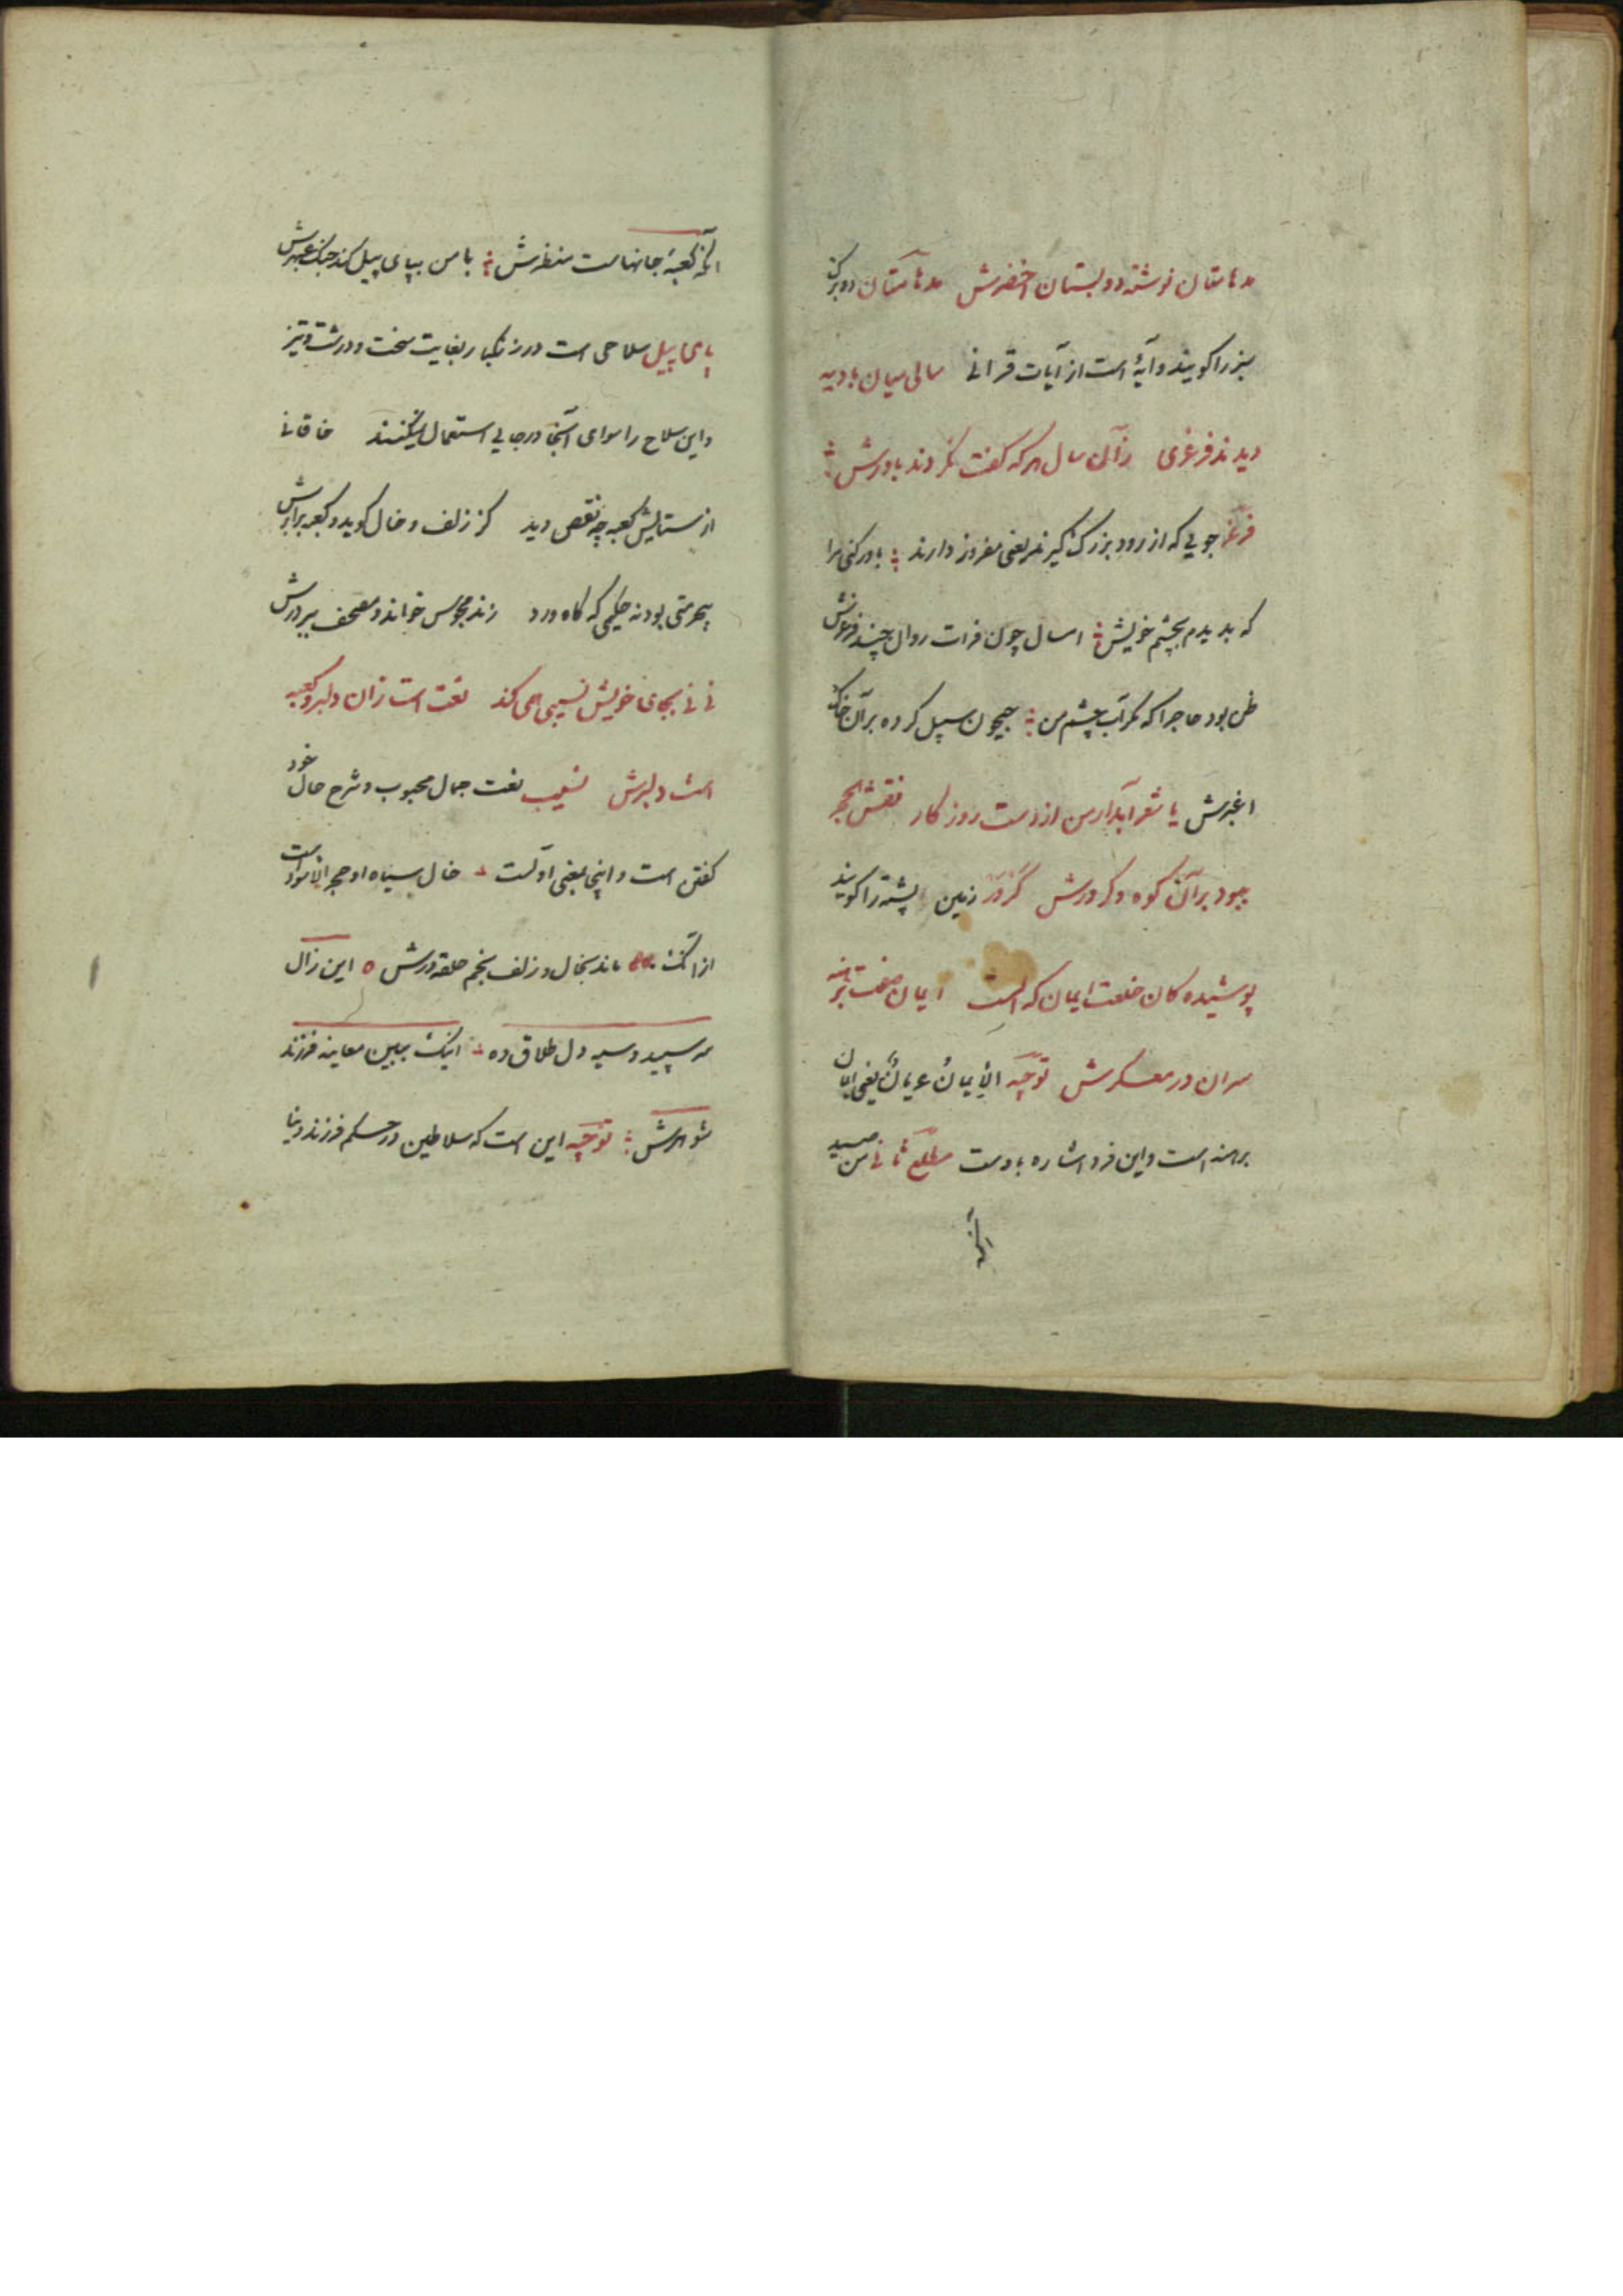 مدهامتان نوشته دو بستان اخضرش مدهامتان دو برک
سبز را کویند و آیهٔ است از آیات قرانی سالی میان بادیه
دیدند فرغری زآن سال هر که کفت نکردند باورش
فرغر جویی که از رود بزرک کیرند یعنی مفروز دارند باور کنی مرا
که بدیدم بچشم خویش امسال چون فرات روان چند فرغرش
ظن بود حاجرا که مکر آب چشم من جیحون سبیل کرده بر آن خاک
اغبرش یا شعر آبدار من از دست روزکار نقش الحجر
ببود بر آن کوه و کردرش کردر زمین پشته را کویند
پوشیده کان خلعت ایمان که الست ایمان صفت برهنه
سران در معسکرش توجیه الأیمان عریان یعنی ایمان
برهنه است و این فرد اشاره بادست مطلع ثانی من صید
آنکه
آنکه کعبهٔ جانهاست منظرش با من بپای پیل کند جنک عبهرش
پای پیل سلاحی است در زنکبار بغایت سخت و درشت و تیز
و این سلاح را سوای آنجا در جایی استعمال نمیکنند خاقانی
از ستایش کعبه چه نقص دید کز زلف و خال کوید و کعبه برابرش
بیحرمتی بود نه حکیمی که کاه ورد زند مجوس خواند و مصحف ببر درش
نی نی بجای خویش نسیبی همی کند نعت است زان دلبر و کعبه
است دلبرش نسیب نعت جمال محبوب و شرح حال خود
کفتن است و اینجا بمعنی اولست خال سیاه او حجر الأسود است
از آنک ماند بخال و زلف بخم حلقه درش این زال
سر سپید و سیه دل طلاق ده اینک ببین معاینه فرزند
شوهرش توجیه این است که سلاطین در حکم فرزند دنیا